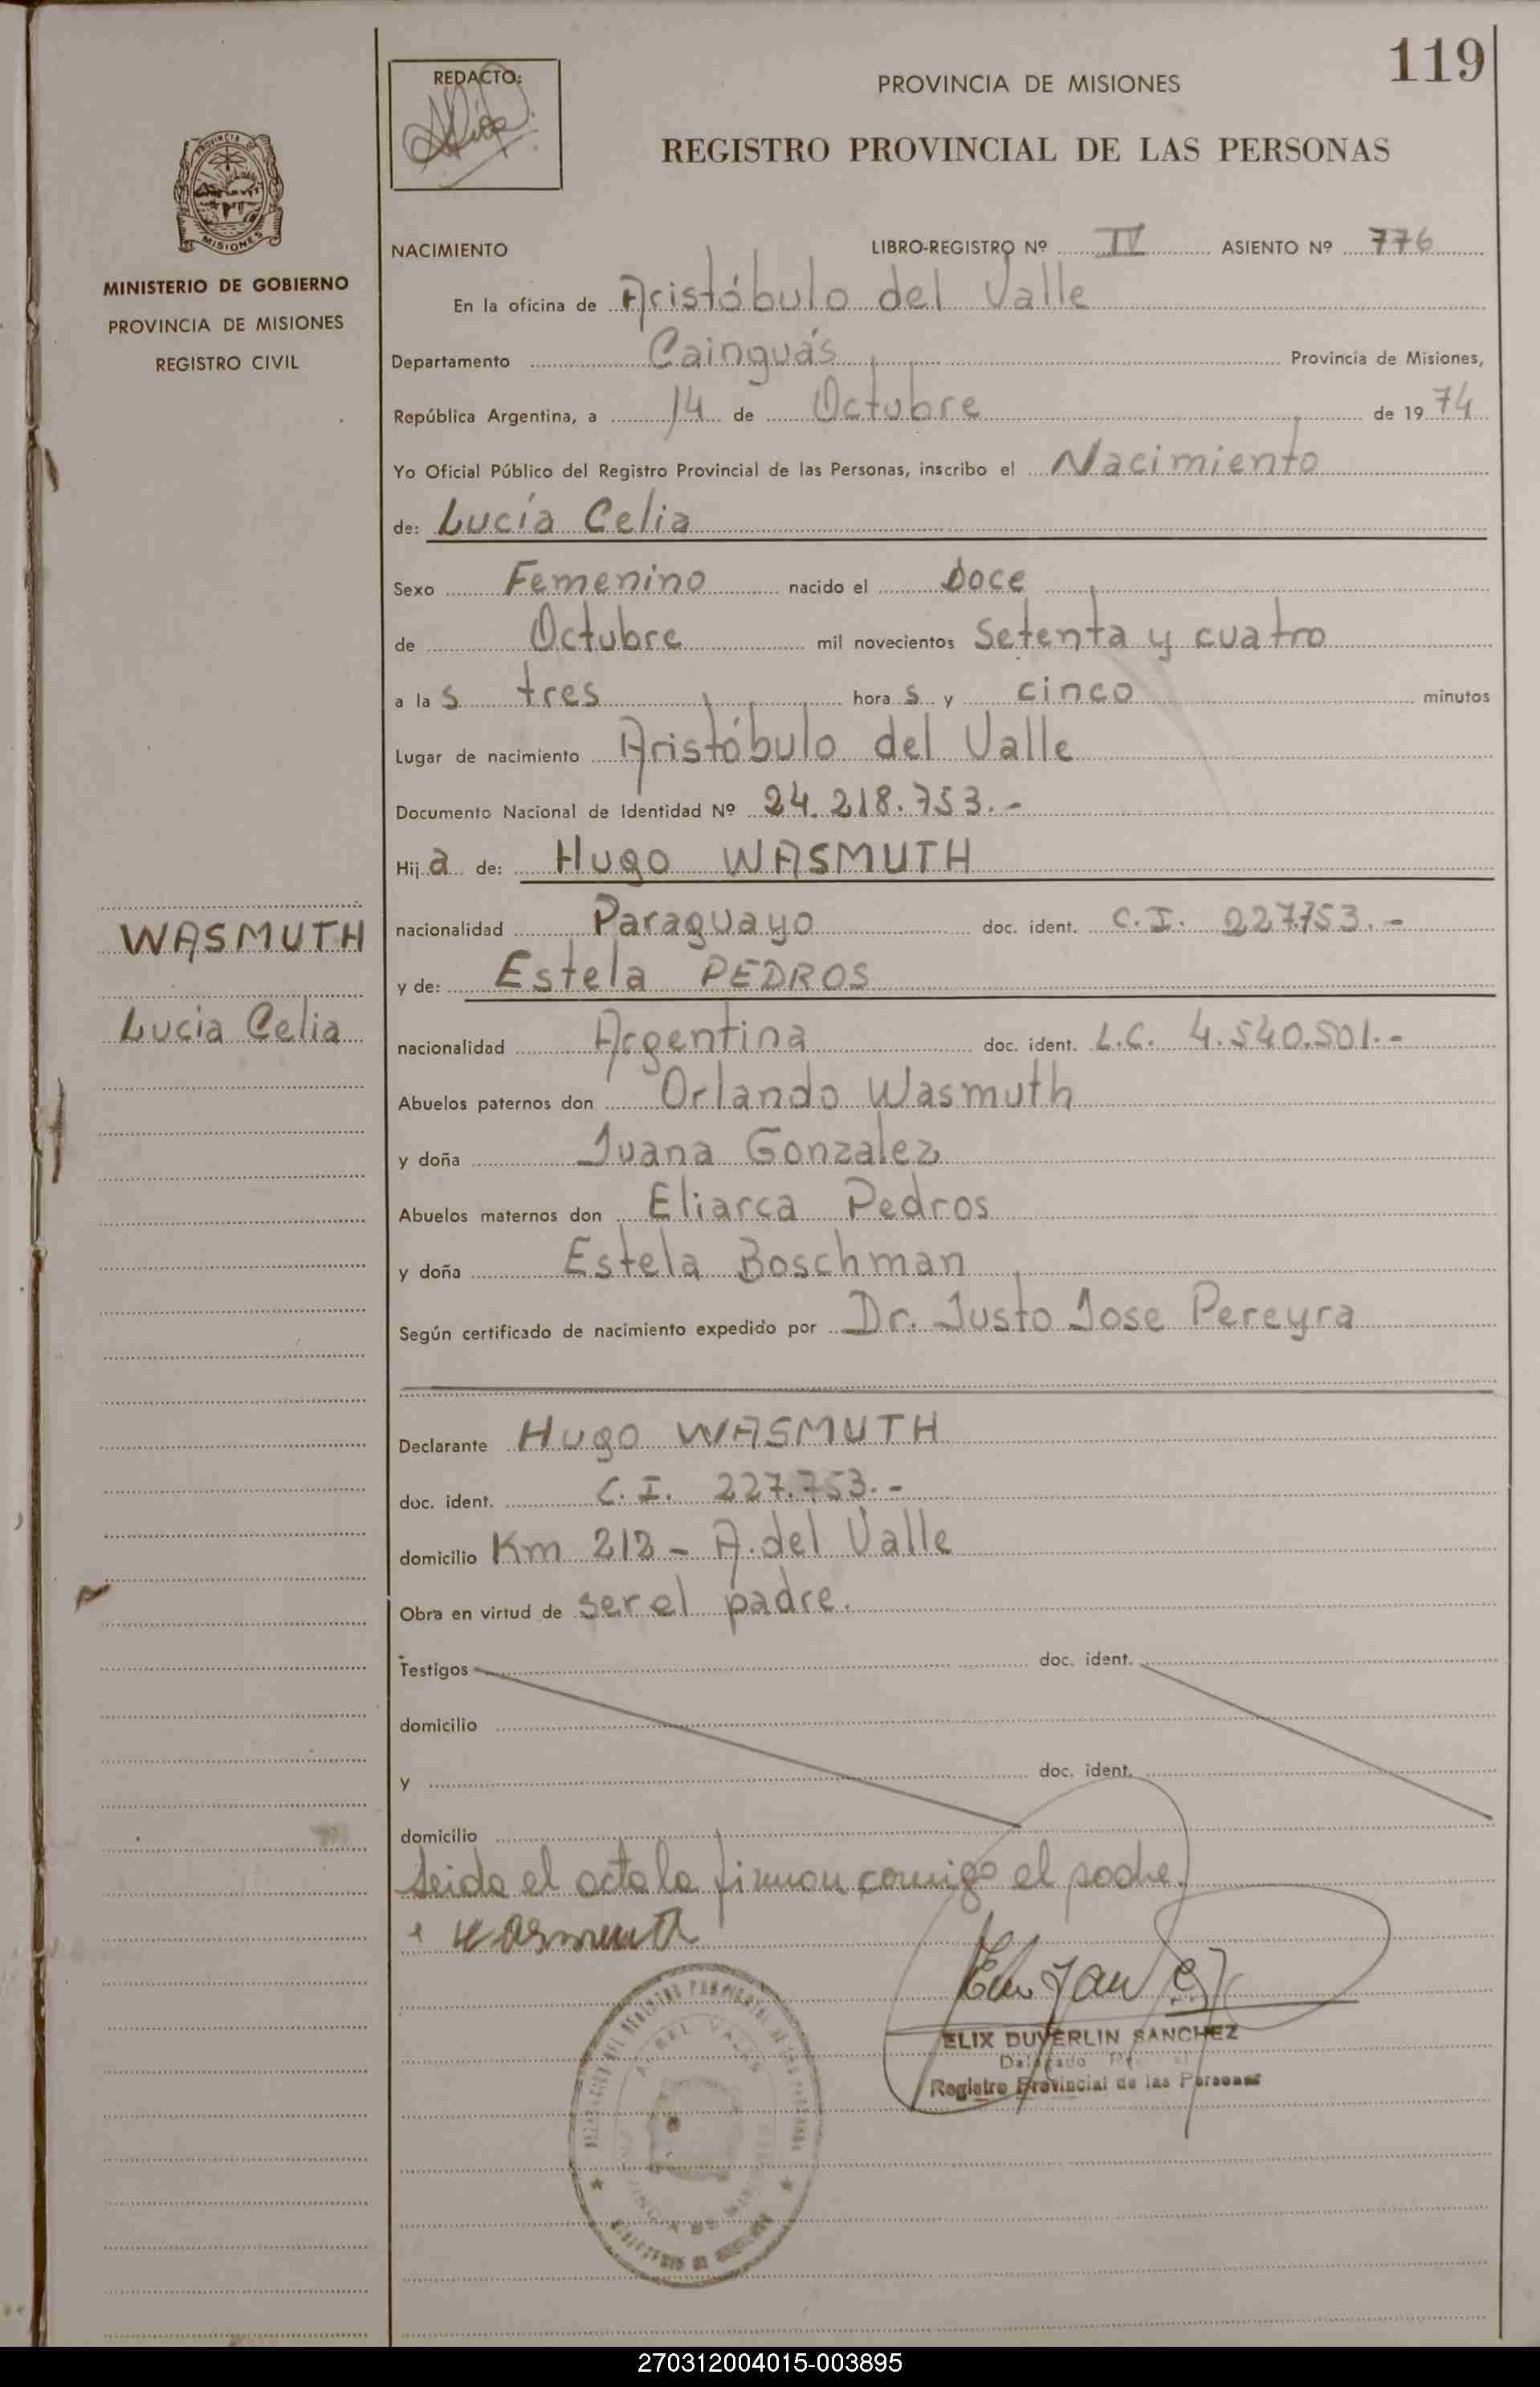 119
REDACTO:
PROVINCIA DE MISIONES
REGISTRO PROVINCIAL DE LAS PERSONAS
PROVINCIA
MISIONES
MINISTERIO DE GOBIERNO
PROVINCIA DE MISIONES
REGISTRO CIVIL
NACIMIENTO LIBRO-REGISTRO Nº IV ASIENTO Nº 776
En la oficina de Aristóbulo del Valle
Departamento Cainguás Provincia de Misiones,
República Argentina, a 14 de Octubre de 1974
Yo Oficial Público del Registro Provincial de las Personas, inscribo el Nacimiento
de: Lucía Celia
Sexo Femenino nacido el Doce
de Octubre mil novecientos Setenta y cuatro
a las tres horas y cinco minutos
Lugar de nacimiento Aristóbulo del Valle
Documento Nacional de Identidad Nº 24.218.753.-
Hija de: Hugo WASMUTH
WASMUTH
nacionalidad Paraguayo doc. ident. C.I. 227.753.-
y de: Estela PEDROS
Lucia Celia
nacionalidad Argentina doc. ident. L.C. 4.540.501.-
Abuelos paternos don Orlando Wasmuth
y doña Juana Gonzalez
Abuelos maternos don Eliarca Pedros
y doña Estela Boschman
Según certificado de nacimiento expedido por Dr. Justo Jose Pereyra
Declarante Hugo WASMUTH
doc. ident. C.I. 227.753.-
domicilio Km 212 - A. del Valle
Obra en virtud de ser el padre.
Testigos doc. ident.
domicilio
y doc. ident.
domicilio
Leida el acta la firman conmigo el padre.
Wasmuth
ELIX DUVERLIN SANCHEZ
Delegado
Registro Provincial de las Personas
270312004015-003895